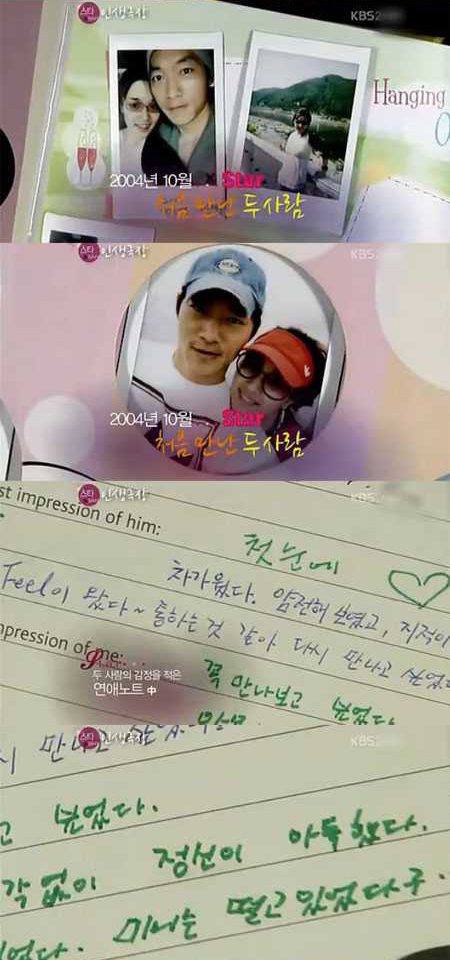 스타 인생극장
KBS2
Hanging
O
2004년 10월.. Star
처음 만난 두사람
스타 인생극장
KBS2
2004년 10월.. Star
처음 만난 두사람
스타 인생극장
KBS2
st impression of him:
첫눈에
차가웠다. 얌전해 보였고, 지적이
Feel이 왔다~ 통하는 것 같아 다시 만나고 싶었다
mpression of me:
꼭 만나보고 싶었다.
두 사람의 감정을 적은
연애노트 中
스타 인생극장
KBS2
시 만나고
고 싶었다.
각없이 정신이 아득했다.
있었다. 미녀는 떨고 있었다구.